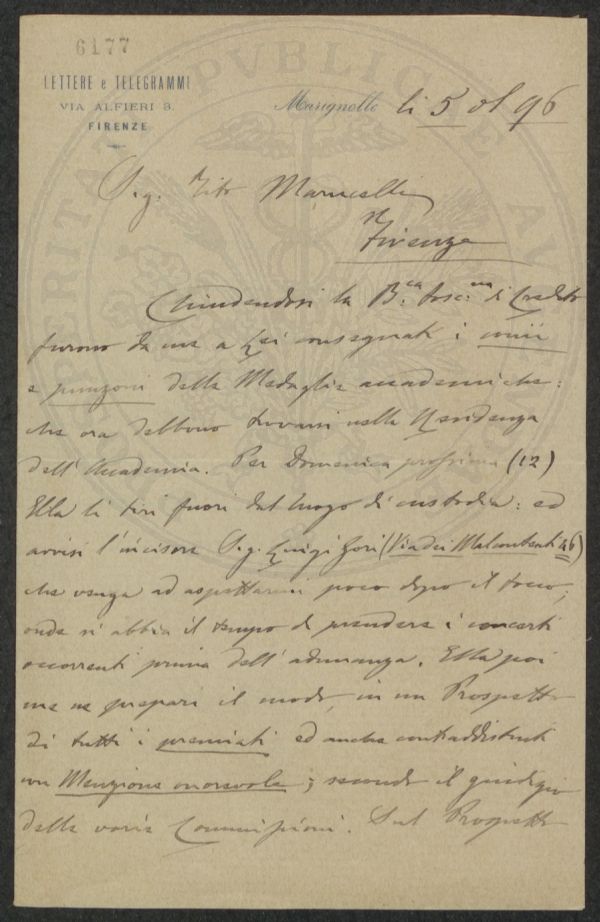 6177
LETTERE e TELEGRAMMI
VIA ALFIERI 3.
FIRENZE
Marignolle li 5 96
Sig. Tito Marucelli
Firenze
Chiudendosi la B.ca Tosc.na di Credito
furono da me a Lei consegnati i conii
e punzoni delle Medaglie accademiche:
che ora debbono trovarsi nella Residenza
dell'Accademia. Per Domenica prossima (12)
Ella li tiri fuori dal luogo di custodia: ed
avvisi l'incisore Sig. Luigi Gori (Via dei Malcontenti 46)
che venga ad aspettarmi poco dopo il tocco;
onde si abbia il tempo di prendere i concerti
occorrenti prima dell'adunanza. Ella poi
me ne prepari il modo, in un Prospetto
di tutti i premiati ed anche contraddistinti
con Menzione onorevole; secondo il giudizio
delle varie Commissioni. Sul Prospetto